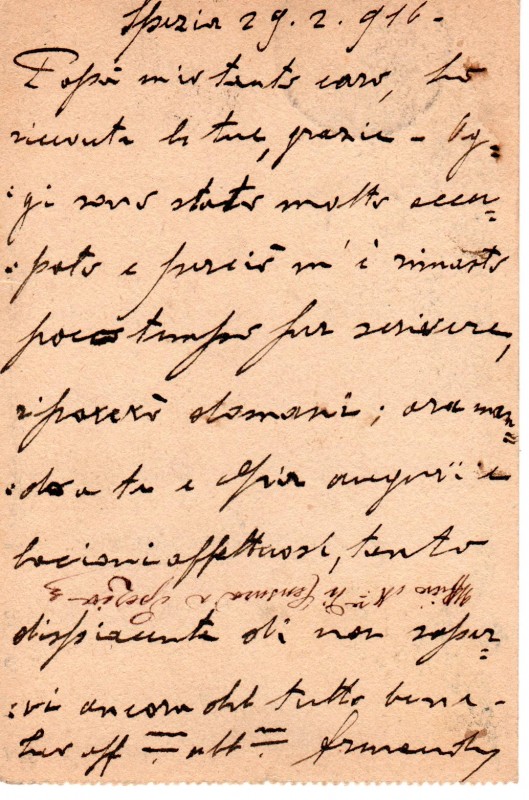 Spezia 29. 2. 916 -
Papà mio tanto caro, ho
ricevute le tue, grazie - Og=
gi sono stato molto occu=
pato e perciò m'è rimasto
poco tempo per scrivere,
riparerò domani; ora man=
do a te e Pia auguri e
bacioni affettuosi, tanto
dispiacente di non saper=
vi ancora del tutto bene -
aff. obb.